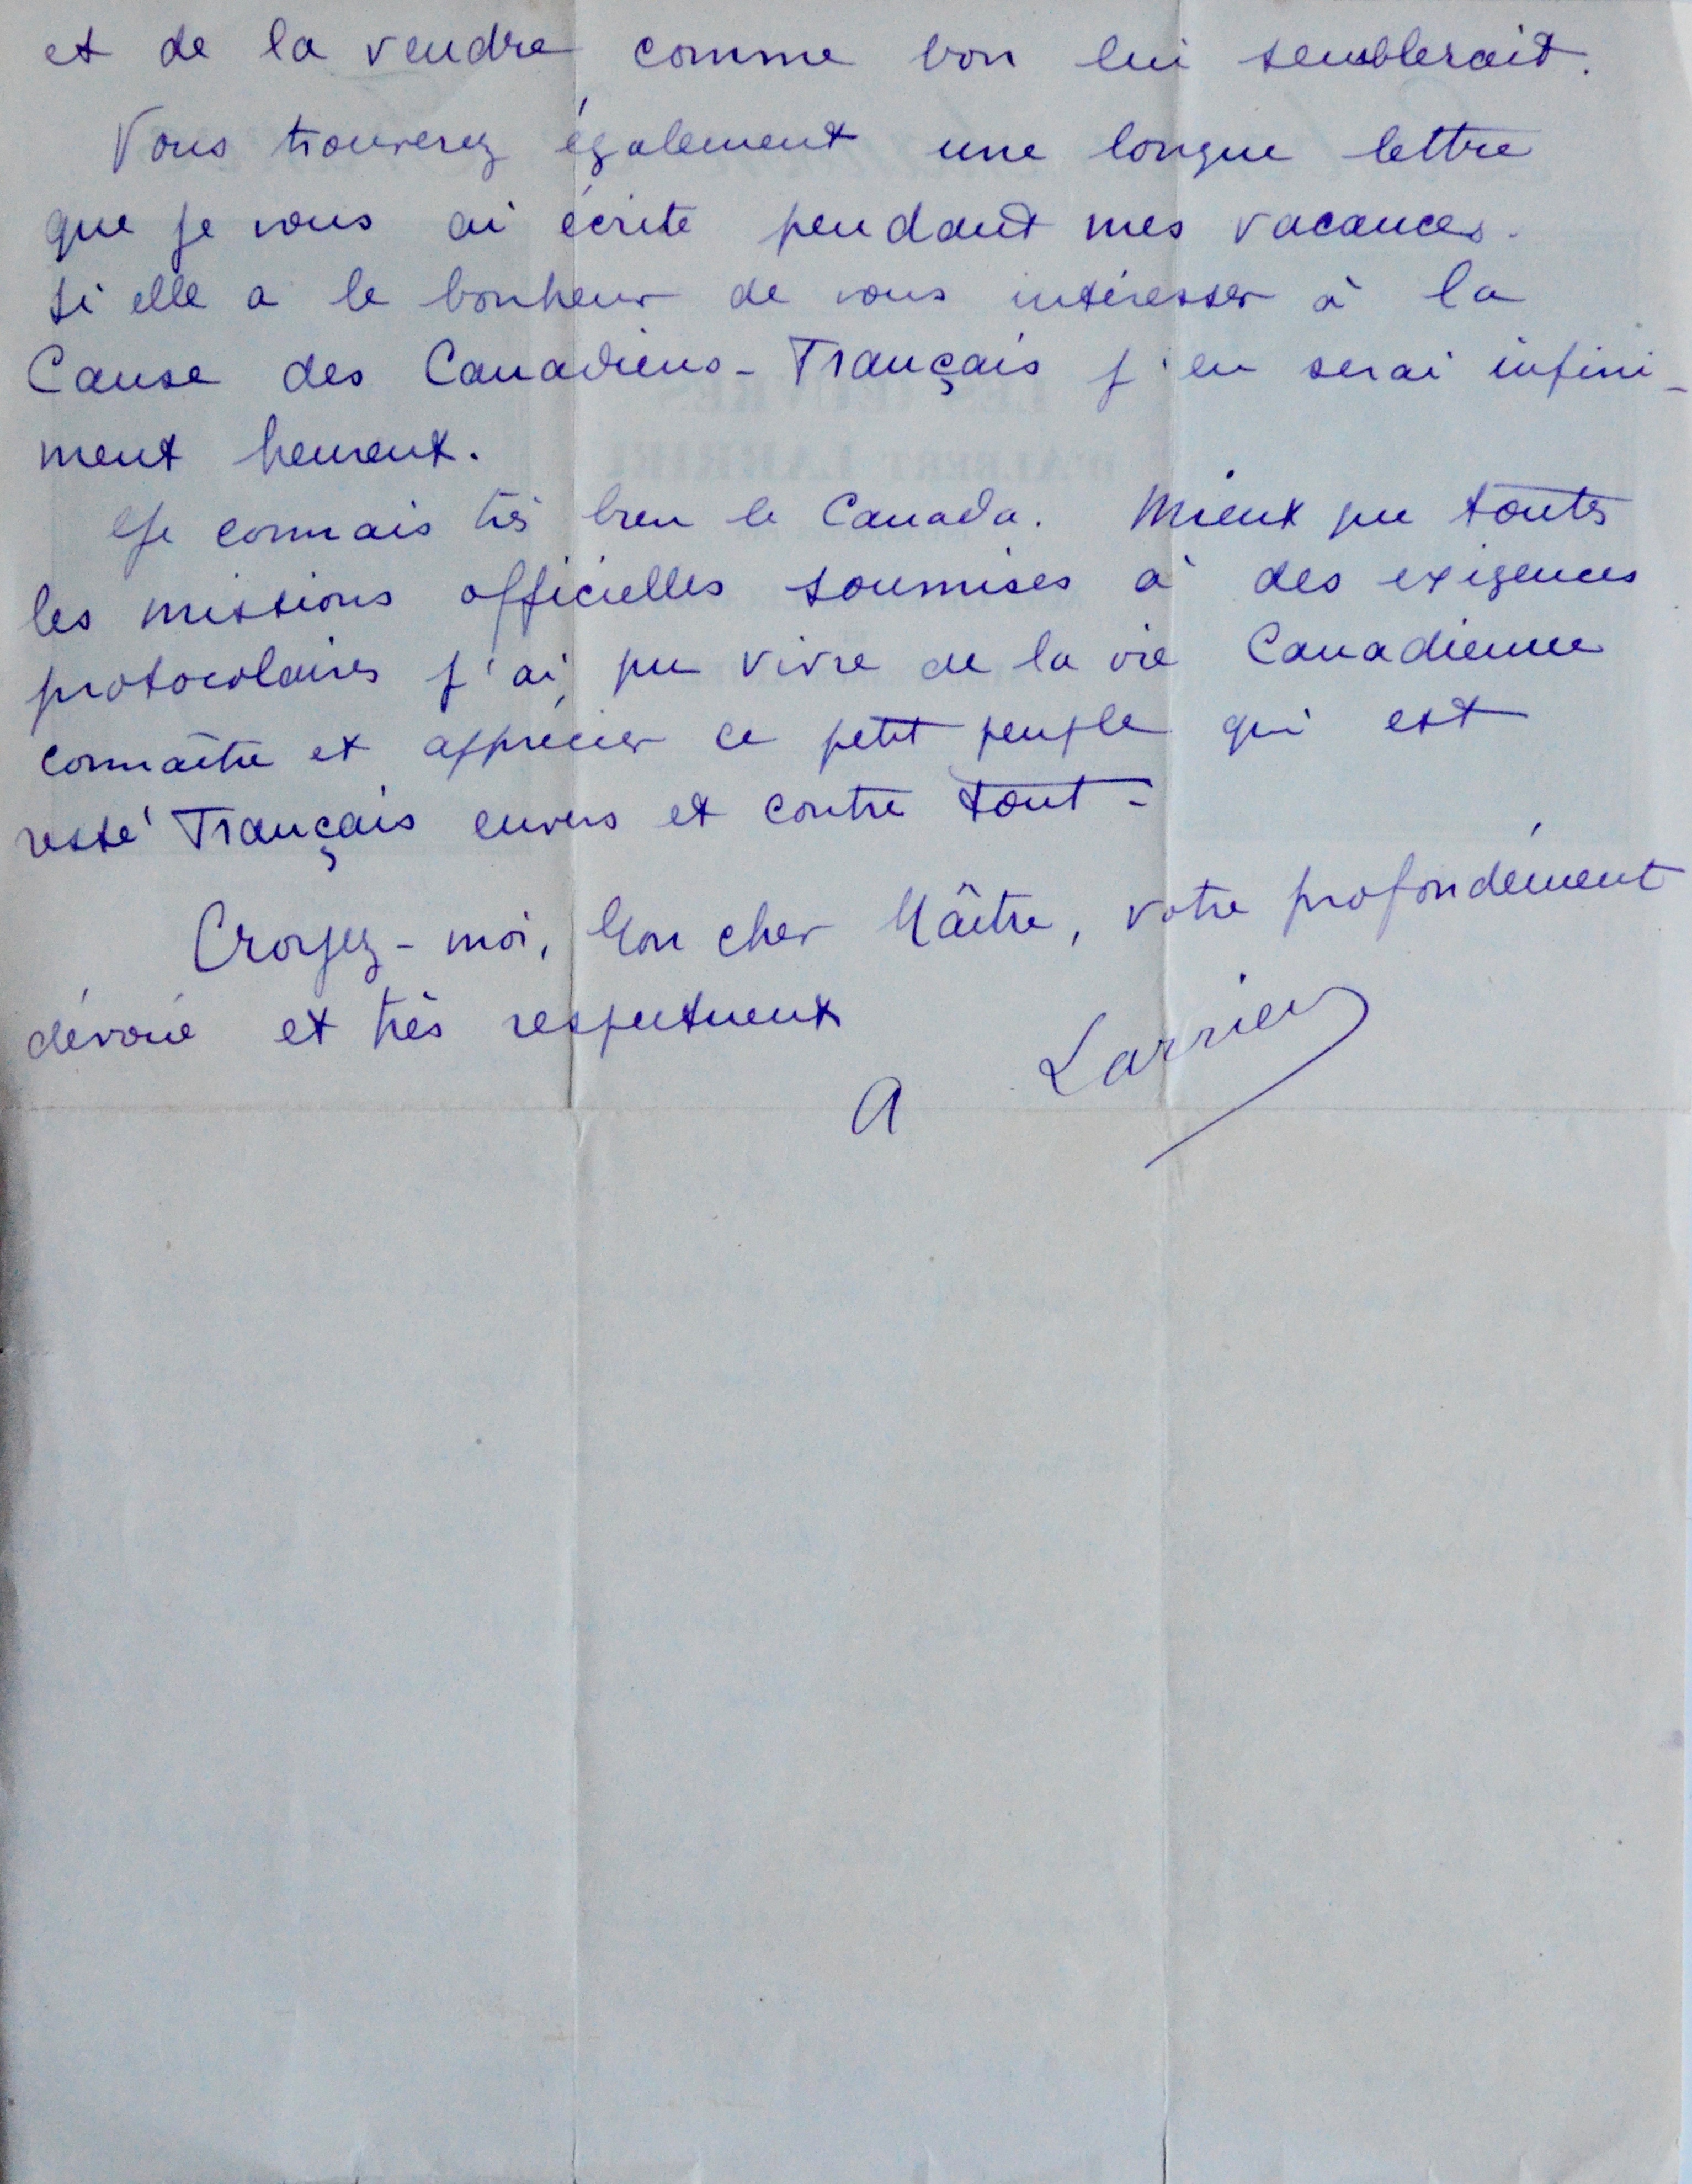 et de la vendre comme bon lui semblerait.
Vous trouverez également une longue lettre
que je vous ai écrite pendant mes vacances.
Si elle a le bonheur de vous intéresser à la
Cause des Canadiens-Français j'en serai infini-
ment heureux.
Je connais très bien le Canada. Mieux que toutes
les missions officielles soumises à des exigences
protocolaires j'ai pu vivre de la vie Canadienne
connaître et apprécier ce petit peuple qui est
resté Français envers et contre tout -
Croyez-moi, Mon cher Maître, votre profondément
dévoué et très respectueux
A Larrieu
LES ŒUVRES
D'ALBERT LARRIEU